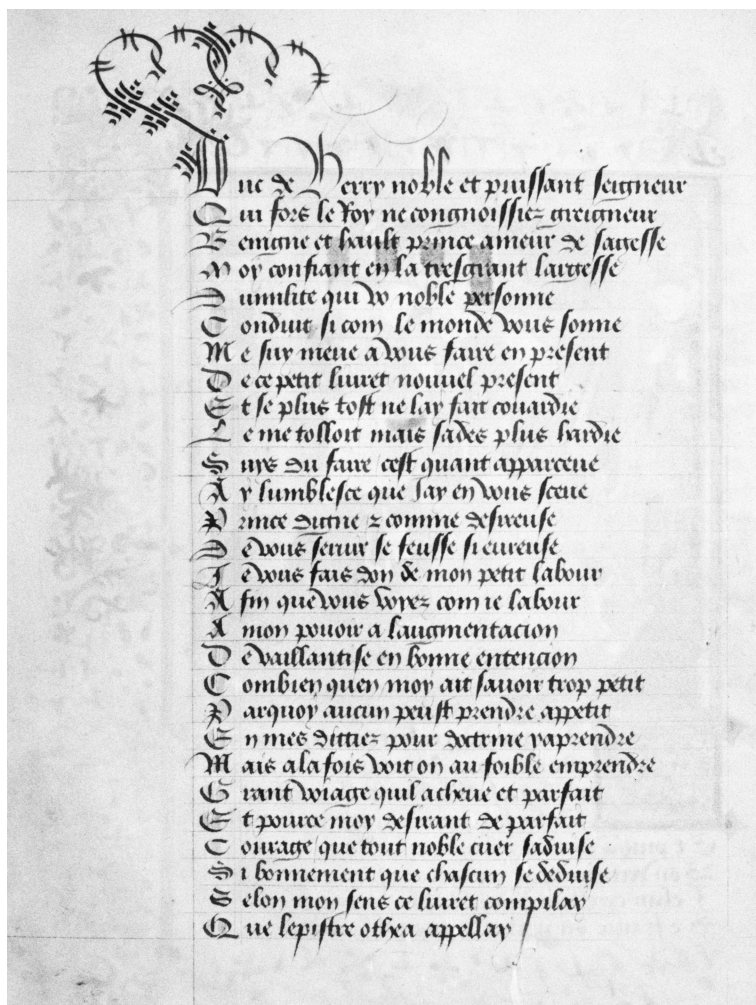 Duc de Berry noble et puissant seigneur
Qui fors le Roy ne congnoissiez greigneur
Benigne et hault prince ameur de sagesse
Moy confiant en la tresgrant largesse
Dumilite qui vo noble personne
Conduit si com le monde vous sonne
Me suy meue a vous faire en present
De ce petit livret nouvel present
Et se plus tost ne lay fait couardie
Le me tolloit mais sades plus hardie
Suys du faire cest quant apparceue
Ay lumblesce que Jay en vous sceue
Prince digne & comme desireuse
De vous servir se feusse si eureuse
Je vous fais don de mon petit labour
Afin que vous voyez com ie labour
A mon povoir a laugmentacion
De vaillantise en bonne entencion
Combien quen moy ait savoir trop petit
Parquoy aucun peust prendre appetit
En mes dittiez pour doctrine y aprendre
Mais a la fois voit on au foible emprendre
Grant voiage quil acheve et parfait
Et pource moy desirant de parfait
Courage que tout noble cuer saduise
Si bonnement que chascun se deduise
Selon mon sens ce livret compilay
Que lepistre othea appellay